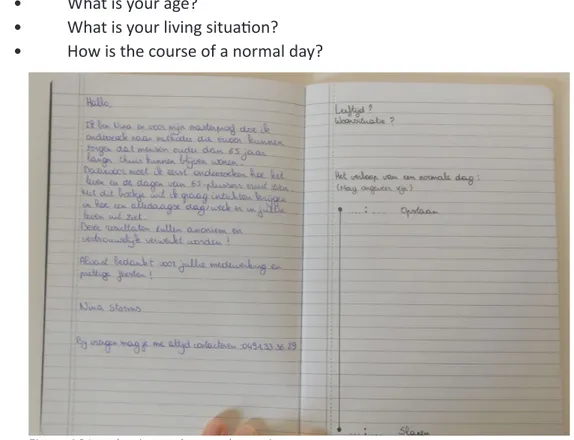 • What is your age?
• What is your living situation?
• How is the course of a normal day?
Hallo,
Ik ben Nina en voor mijn masterproef doe ik
onderzoek naar methodes die ervoor kunnen
zorgen dat mensen ouder dan 65 jaar
langer thuis kunnen blijven wonen.
Daarvoor moet ik eerst onderzoeken hoe het
leven en de dagen van 65-plussers eruit zien.
Met dit boekje wil ik graag inzichten krijgen
in hoe een alledaagse dag/week er in jullie
leven uit ziet.
Deze resultaten zullen anoniem en
vertrouwelijk verwerkt worden!
Alvast bedankt voor jullie medewerking en
prettige feesten!
Nina
Bij vragen mag je me altijd contacteren: 0491 33 36 29
Leeftijd?
Woonsituatie?
Het verloop van een normale dag:
(Mag ongeveer zijn)
...:... Opstaan
...:... Slapen